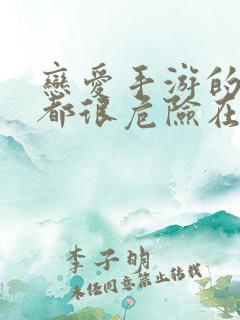 戀愛手游的
都很危險在
李子明
未經同意禁止轉載